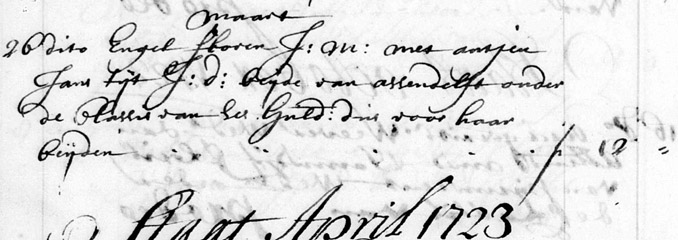 maart
26 dito Engel Floren J: M: met antjen
Jans tijt J: d: beyde van assendelft onder
de Classis van ses Guld: dus voor haar
beyden . . . . . . . 12 =
April 1723